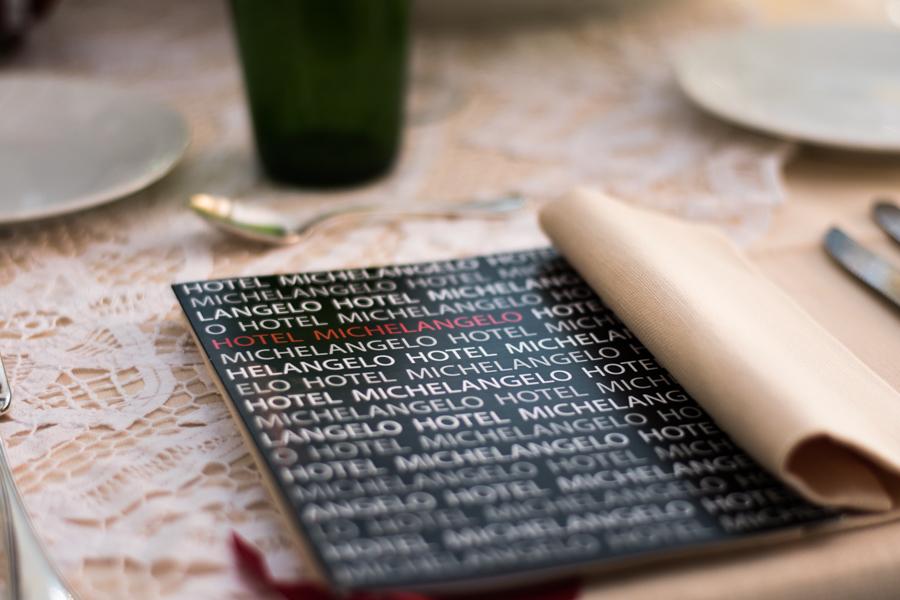 HOTEL MICHELANGELO HOTE
MICHELANGELO HOTEL MICHE
LANGELO HOTEL MICHELANGE
O HOTEL MICHELANGELO HOTE
HOTEL MICHELANGELO HOTEL
MICHELANGELO HOTEL MICHE
HELANGELO HOTEL MICHELA
ELO HOTEL MICHELANGELO HO
HOTEL MICHELANGELO HOTEL
MICHELANGELO HOTEL MICH
LANGELO HOTEL MICHELANG
O HOTEL MICHELANGELO HO
HOTEL MICHELANGELO HOTE
MICHELANGELO HOTEL MICH
ANGELO HOTEL MICHELANGE
O HOTEL MICHELANGELO HOTE
HOTEL MICHELANGELO HOTEL
MICHELANGELO HOTEL MICHE